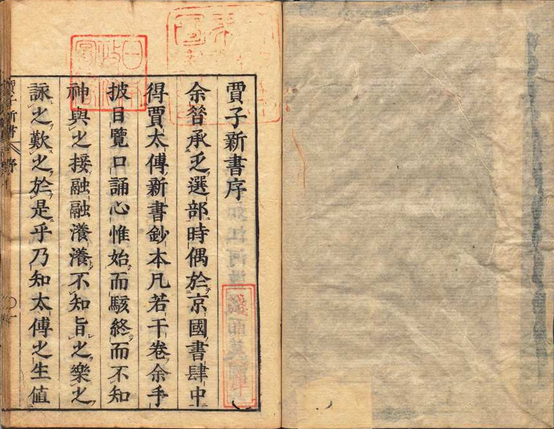 賈子新書序
余嘗承乏選部時偶於京國書肆中
得賈太傅新書鈔本凡若干卷余手
披目覽口誦心惟始而駭終而不知
神與之接融融瀁瀁不知旨之樂之
詠之歎之於是乎乃知太傅之生值